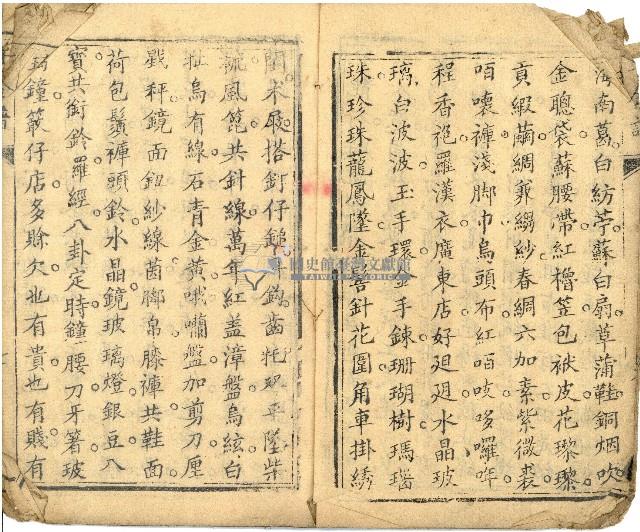 海南葛白紡苧蘇白扇草蒲鞋銅烟吹
金聰袋蘇腰帶紅櫓笠包袱皮花瓈瓈
貢緞繭綢兼縐紗春綢六加素紫微裘
咟嗹褲淺脚巾烏頭布紅咟哆囉哖
程香袍羅漢衣廣東店好𨑨𨑨水晶玻
璃白波波玉手環金手鍊珊瑚樹瑪瑙
珠珍珠龍鳳墜金菩針花圍角車掛綉
屐搭釘仔鎚齒牦平墜柴
風篦共針線萬年紅盖漳盤烏絃白
扯烏有線石青金黃哦嘣盤加剪刀厘
戥秤鏡面鈕紗線茵脚帛膝褲共鞋面
荷包鬚褲頭鈴水晶鏡玻璃燈銀豆八
寶共銜鈴羅經八卦定時鐘腰刀牙箸玻
鐘簆仔店多賒欠也有貴也有賤有
國史館臺灣文獻館
TAIWAN HISTORICA